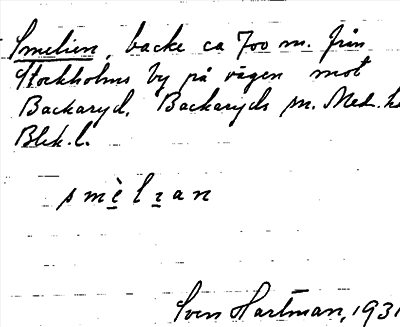 Smelien, backe ca 700 m. från
Stockholms by på vägen mot
Backaryd. Backaryds sn. Med. h
Blek. l.
smèlɪan
Sven Hartman, 1931